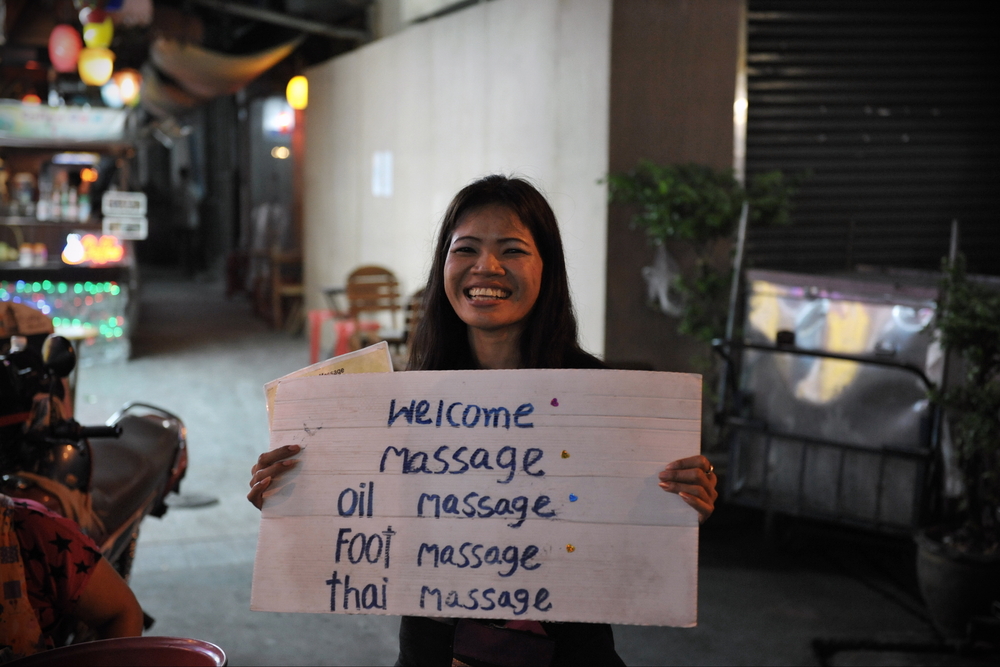 massage
welcome
massage
oil massage
FOOT massage
thai massage